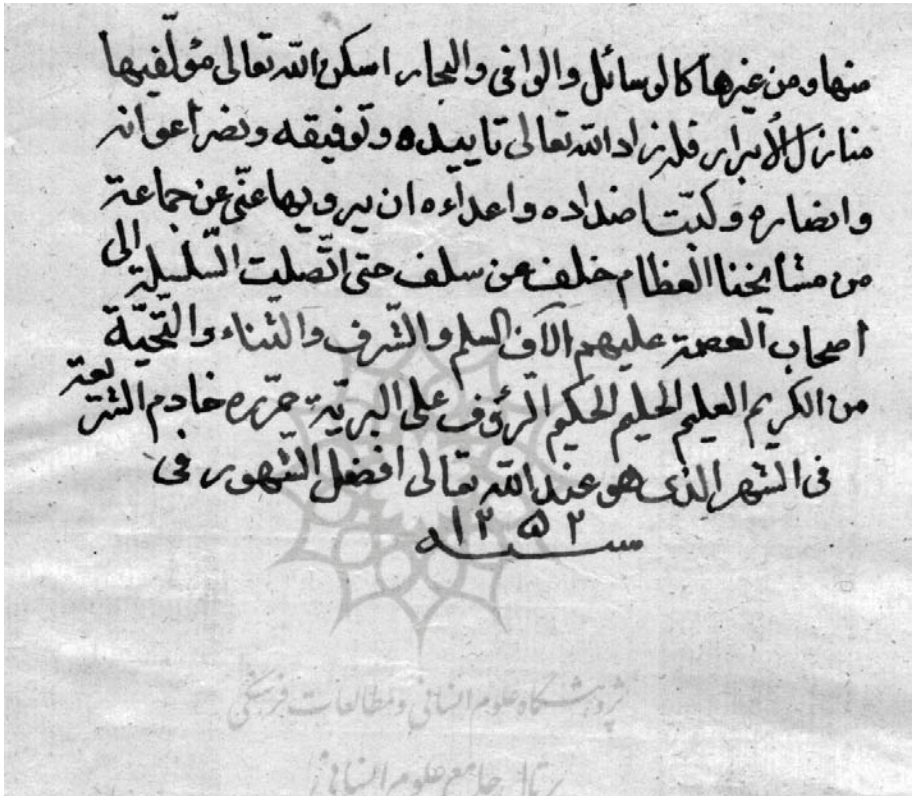 منها و من غيرها كالوسائل والوافى والبحار اسكن الله تعالى مؤلّفيها
منازل الأبرار فله زاد الله تعالى تاييده و توفيقه و نصر اعوانه
و انصاره و كبّت اضداده و اعداءه ان يرويها عنّى عن جماعة
من مشايخنا العظام خلف عن سلف حتى اتّصلت السّلسلة الى
اصحاب العصمة عليهم آلاف السلم و الشّرف والثّناء والتّحيّة
من الكريم العليم الحليم الحكيم الرّؤف على البريّة حرّره خادم الشريعة
فى الشهر الذى هو عند الله تعالى افضل الشّهور فى
سنه ١٢٥٢
پژوهشگاه علوم انسانی و مطالعات فرهنگی
پرتال جامع علوم انسانی